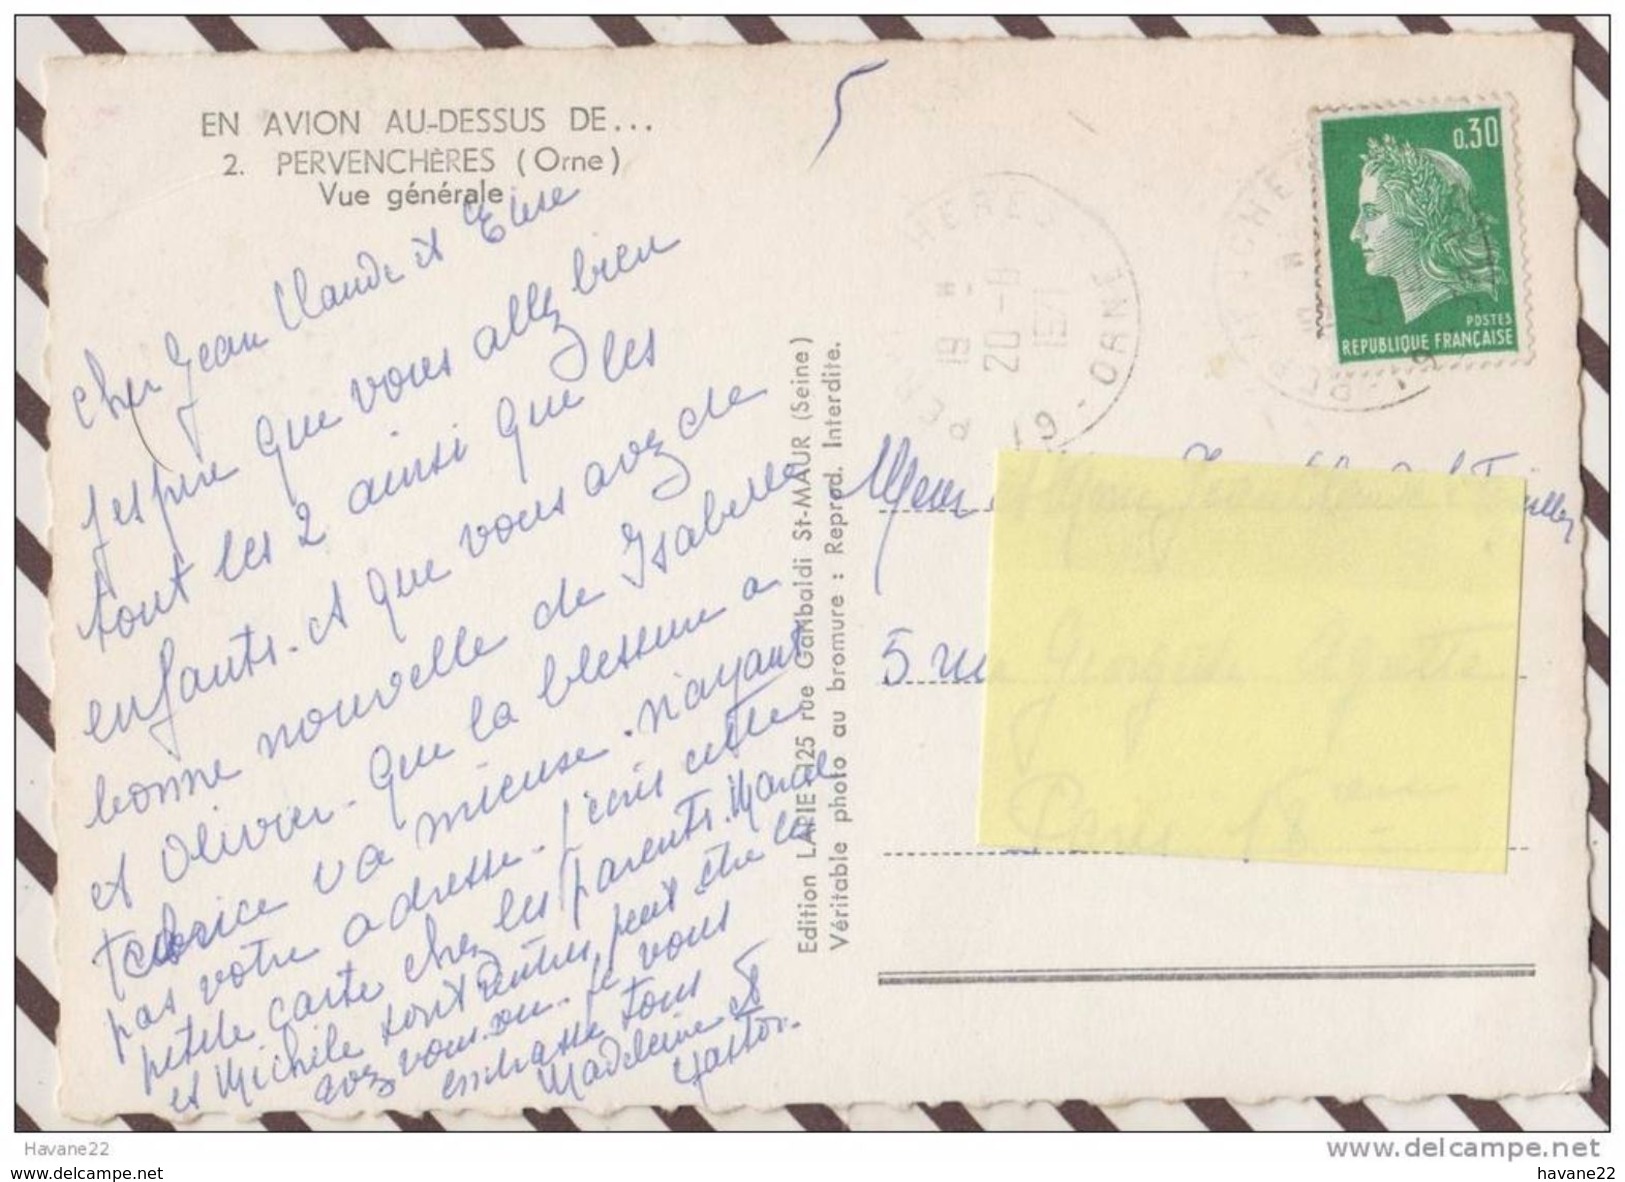 EN AVION AU-DESSUS DE...
2. PERVENCHÈRES (Orne)
Vue générale
5
Cher Jean Claude et Elise
J'espère que vous allez bien
tout les 2 ainsi que les
enfants. et que vous avez de
bonne nouvelle de Isabelle
et Olivier. que la blessure a
va mieuse. n'ayant
pas votre adresse. j'ecris cette
petite carte chez les parents. Marcel
et Michèle sont peut être la
avez vous vu. Je vous
embrasse tous
Madeleine et
Gaston.
Edition LAPIE 125 rue Garibaldi St-MAUR (Seine)
Véritable photo au bromure : Reprod. Interdite.
PERVENCHERES
19 H
20-8
1971
ORNE
0,30
POSTES
REPUBLIQUE FRANÇAISE
5 rue
Paris 18 eme
Havane22
www.delcampe.net
havane22
havane22